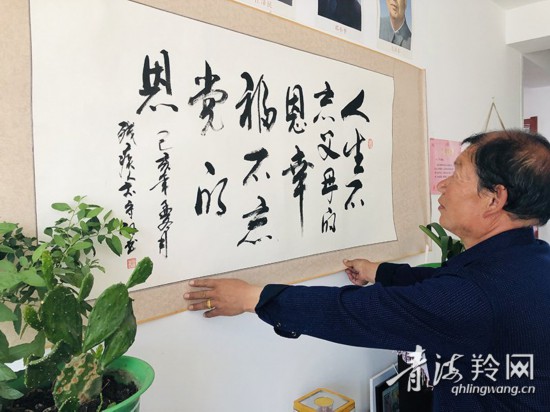 人生不
忘父母的
恩幸
福不忘
党的
恩
己亥年夏月
残疾人
书
青海羚网
qhlingwang.cn